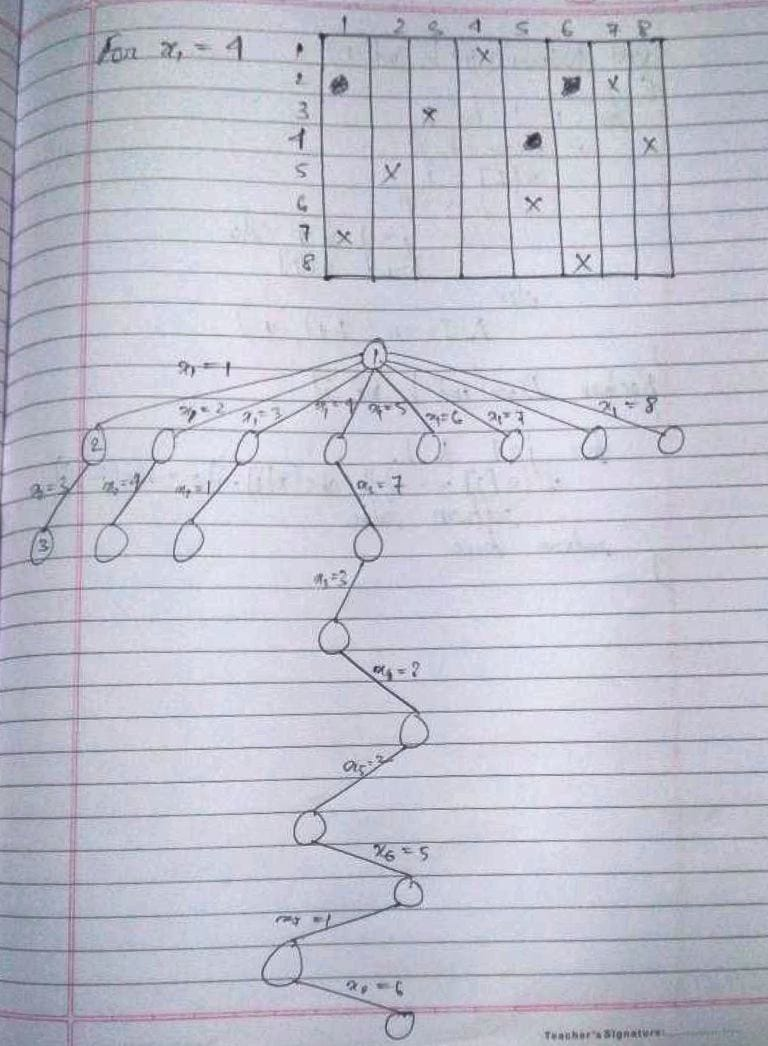 For x₁ = 4
1 2 3 4 5 6 7 8
1 x
2 x
3 x
4 x
5 x
6 x
7 x
8 x
1
x₁ = 1
x₁ = 2
x₁ = 3
x₁ = 4
x₁ = 5
x₁ = 6
x₁ = 7
x₁ = 8
2
x₂ = 3
x₂ = 4
x₂ = 1
x₂ = 7
3
x₃ = 3
x₄ =
x₅ =
x₆ = 5
x₇ = 1
x₈ = 6
Teacher's Signature: